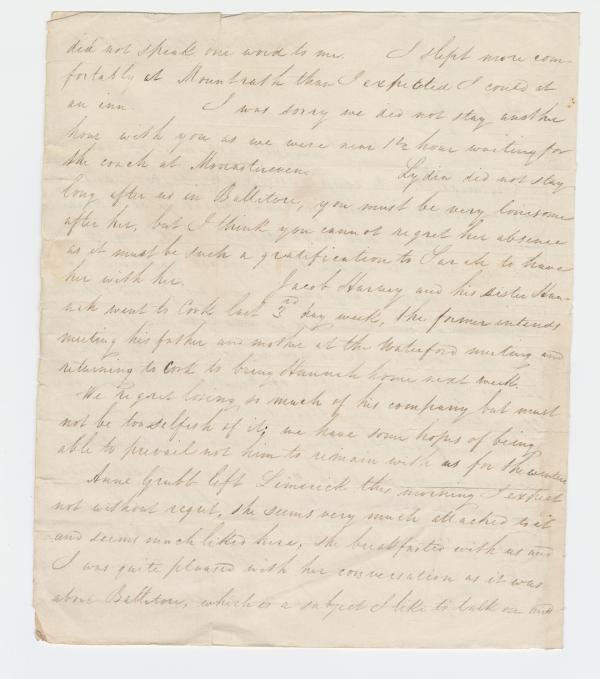 did not speak one word to me. I slept more com-
fortably at Mountrath than I expected I could at
an inn. I was sorry we did not stay another
hour with you as we were near 1½ hour waiting for
the coach at Monasterevan. Lydia did not stay
long after us in Ballitore, you must be very lonesome
after her, but I think you cannot regret her absence
as it must be such a gratification to Sarah to have
her with her. Jacob Harvey and his sister Han-
nah went to Cork last 3rd day week, the former intends
meeting his father and mother at the Waterford meeting and
returning to Cork to bring Hannah home next week.
We regret losing so much of his company but must
not be too selfish of it; we have some hopes of being
able to prevail on him to remain with us for the winter
Anne Grubb left Limerick this morning I expect
not without regret, she seems very much attached to it
and seems much liked here, she breakfasted with us and
I was quite pleased with her conversation as it was
about Ballitore, which is a subject I like to talk on